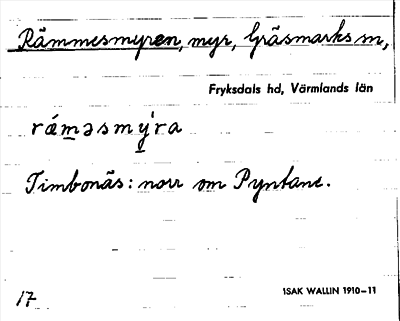 Rämmesmyren, myr, Gräsmarks sn,
Fryksdals hd, Värmlands län
rǽm̲əsmỳ̲ra
Timbonäs: norr om Pyntane.
17
ISAK WALLIN 1910–11